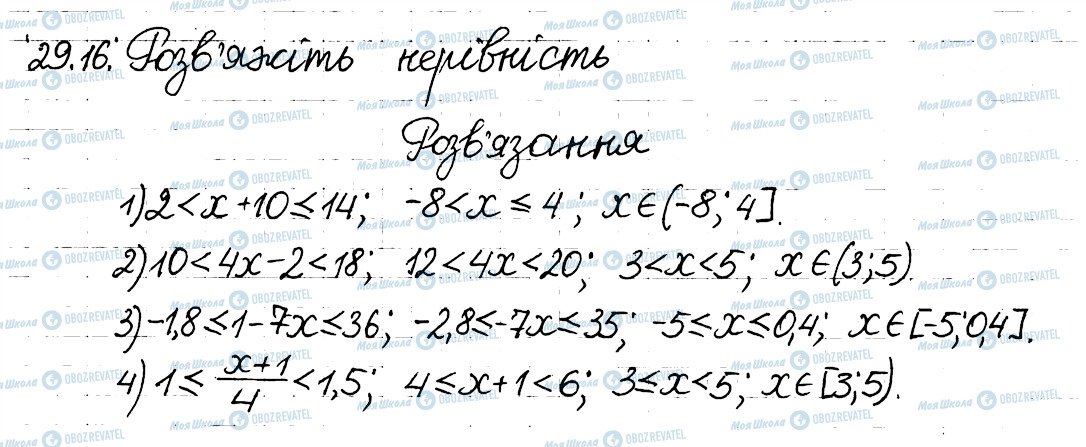 29.16. Розв'яжіть нерівність
Розв'язання
1) 2 < x + 10 ≤ 14; -8 < x ≤ 4; x ∈ (-8; 4].
2) 10 < 4x - 2 < 18; 12 < 4x < 20; 3 < x < 5; x ∈ (3; 5).
3) -1,8 ≤ 1 - 7x ≤ 36; -2,8 ≤ -7x ≤ 35; -5 ≤ x ≤ 0,4; x ∈ [-5; 0,4].
4) 1 ≤ (x+1)/4 < 1,5; 4 ≤ x + 1 < 6; 3 ≤ x < 5; x ∈ [3; 5).